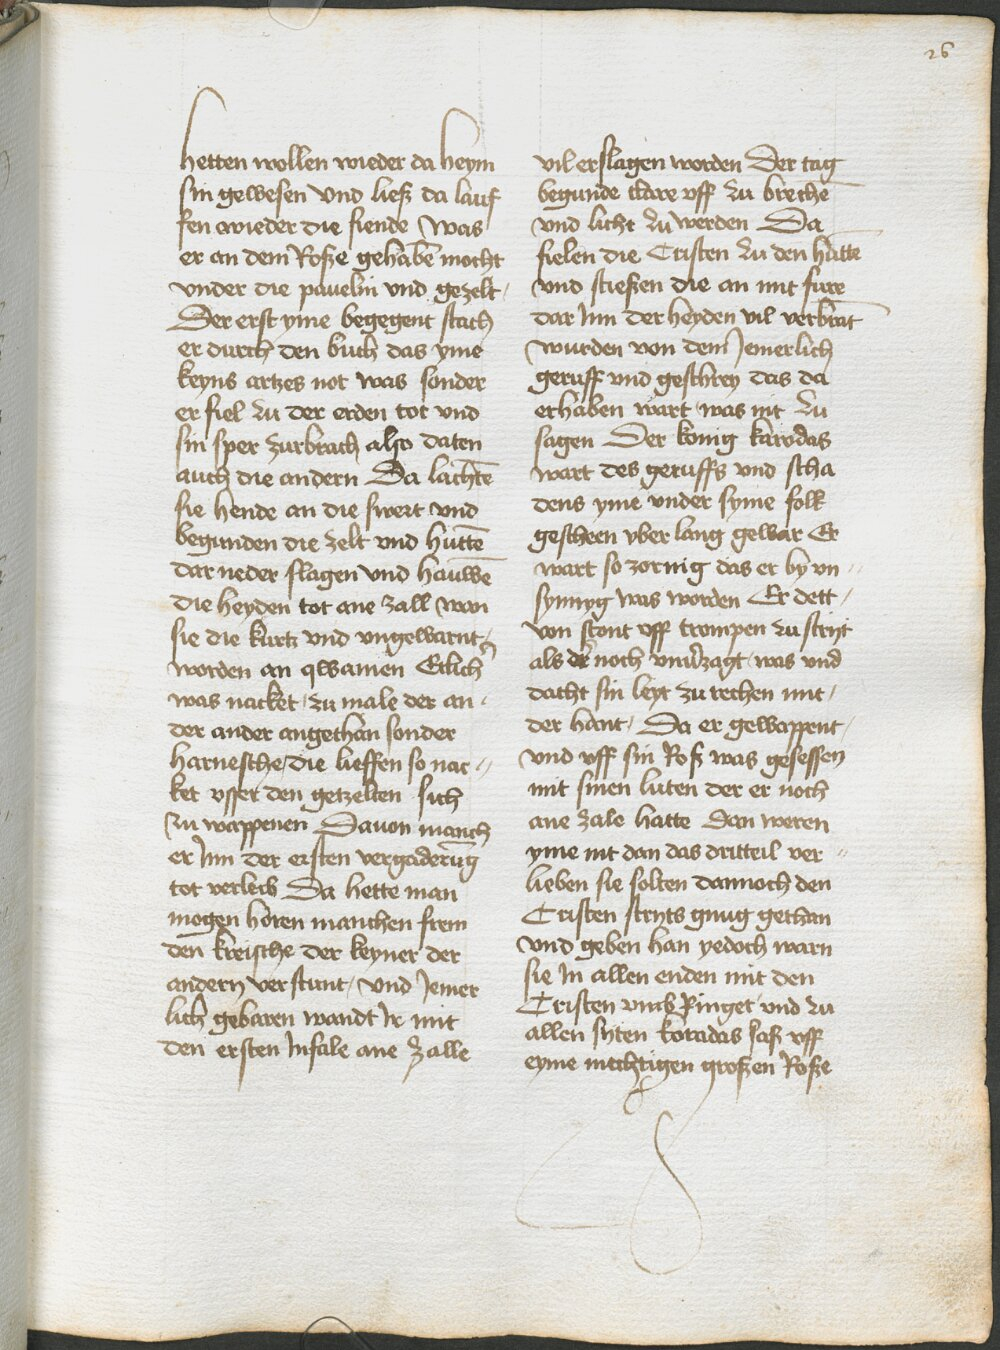 26
hetten wollen wieder da heym
sin gewesen vnd ließ da lauf
fen wieder die fiende Was
er an dem Roße gehaben mocht
vnder die pauelin vnd gezelt
Der erst yme begegent stach
er durch den buch das yme
keyns artzes not was sonder
er fiel zu der erden tot vnd
sin sper zurbrach also daten
auch die andern Da lachtē
sie hende an die swert vnd
begunden die zelt vnd huttē
dar neder slagen vnd hauwē
die heyden tot ane zall wan
sie die kurtz vnd vngewarnt
worden an qwamen Etlich
was nacket zu male der an
der ander angethan sonder
harnesche die lieffen so nac
ket vsser den getzelten sich
zu wappenen Dauon manch
er Inn der ersten vergaderūg
tot verleib Da hette man
mogen horen manchen frem
den kreische der keyner der
andern verstunt vnd Jemer
lich gebaren wandt Ir mit
den ersten Infale ane zalle
vil erslagen worden Der tag
begunde clare vff zu brechē
vnd licht zu werden Da
fielen die Cristen zu den huttē
vnd stießen die an mit fure
dar Inn der heyden vil verbrāt
wurden von dem Jemerlich
geruff vnd geschrey das da
erhaben wart was nit zu
sagen Der konig karodas
wart des geruffs vnd scha
dens yme vnder syme folk
gescheen vber lang gewar Er
wart so zornig das er by vn
synnyg was worden Er dett
von stont vff trompen zu stryt
als der noch vnuerzagt was vnd
dacht sin leyt zu rechen mit
der hant Da er gewappent
vnd vff sin Roß was gesessen
mit sinen luten der er noch
ane zale hatte Dan weren
yme nit dan das dritteil ver
lieben sie solten dannoch den
Cristen stryts gnug gethan
vnd geben han yedoch warn
sie In allen enden mit den
Cristen vmb Ringet vnd zu
allen syten koradas saß vff
eyme mechtigen großen Roße